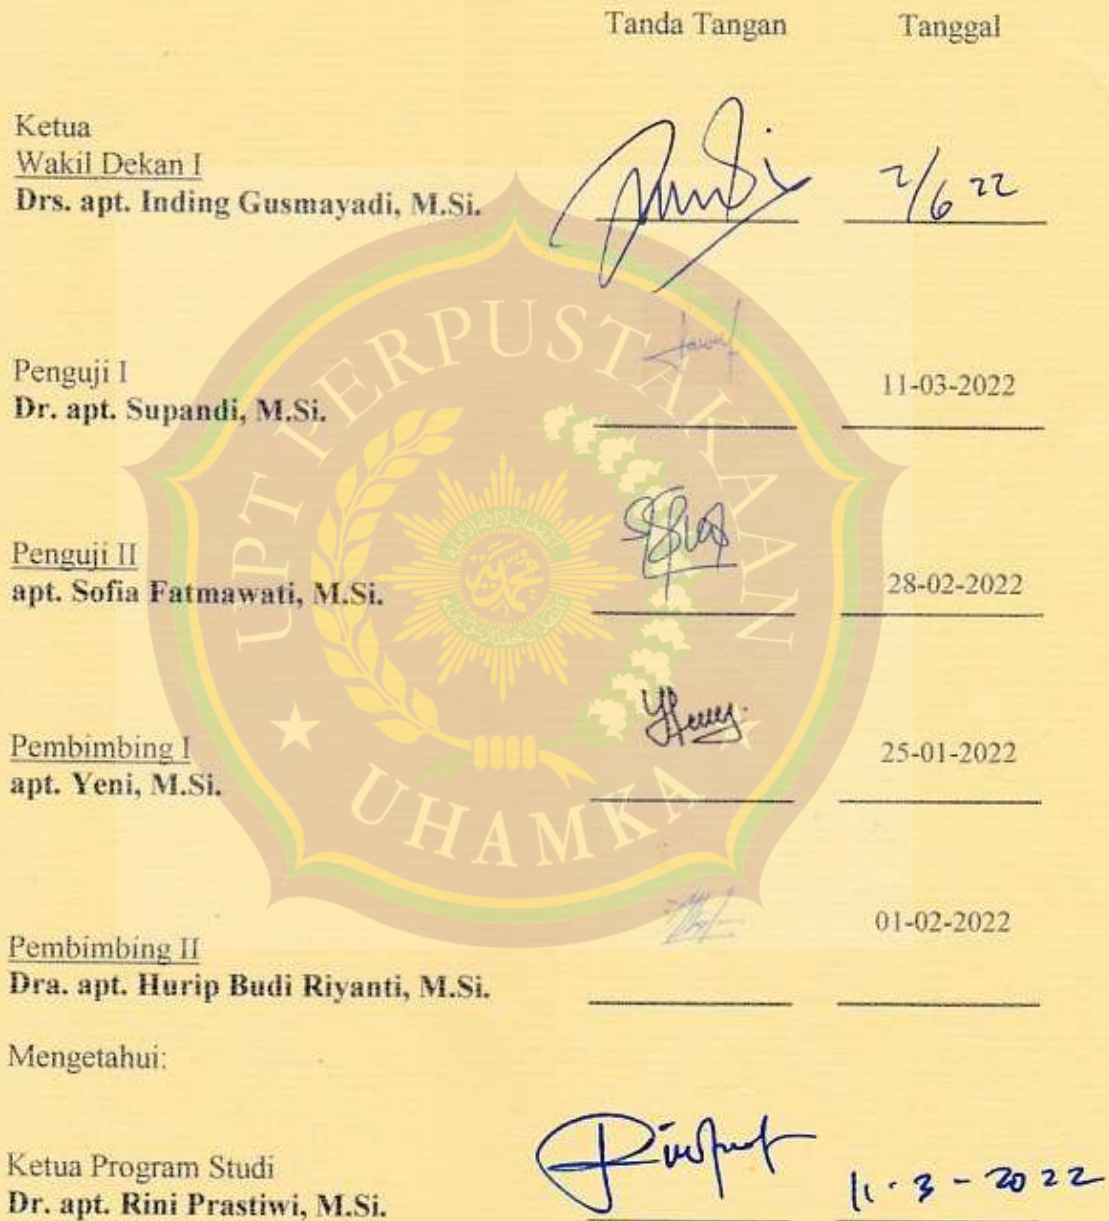 Tanda Tangan Tanggal
Ketua
Wakil Dekan I
Drs. apt. Inding Gusmayadi, M.Si. 2/6 22
Penguji I
Dr. apt. Supandi, M.Si. 11-03-2022
Penguji II
apt. Sofia Fatmawati, M.Si. 28-02-2022
Pembimbing I
apt. Yeni, M.Si. 25-01-2022
Pembimbing II
Dra. apt. Hurip Budi Riyanti, M.Si. 01-02-2022
Mengetahui:
Ketua Program Studi
Dr. apt. Rini Prastiwi, M.Si. 11-3-2022
UPT PERPUSTAKAAN
UHAMKA